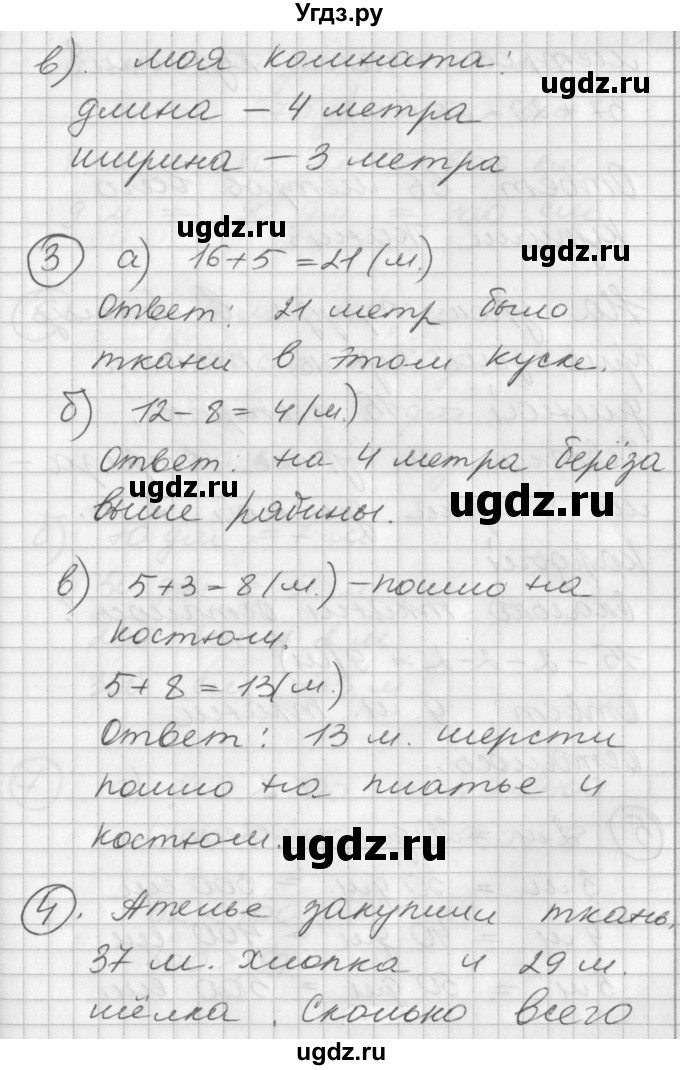 Угдз.ру
в). моя комната:
ugdz.ru
ugdz.ru
длина – 4 метра
ширина – 3 метра
ugdz.ru
ugdz.ru
3 а) 16+5=21(м.)
Ответ: 21 метр было
ткани в этом куске.
б) 12–8=4(м.)
Ответ: на 4 метра берёза
ugdz.ru
ugdz.ru
выше рябины.
в) 5+3=8(м.) – пошло на
костюм.
5+8=13(м.)
Ответ: 13 м. шерсти
пошло на платье и
костюм.
ugdz.ru
4. Ателье закупили ткань.
37 м. хлопка и 29 м.
шёлка. Сколько всего
ugdz.ru